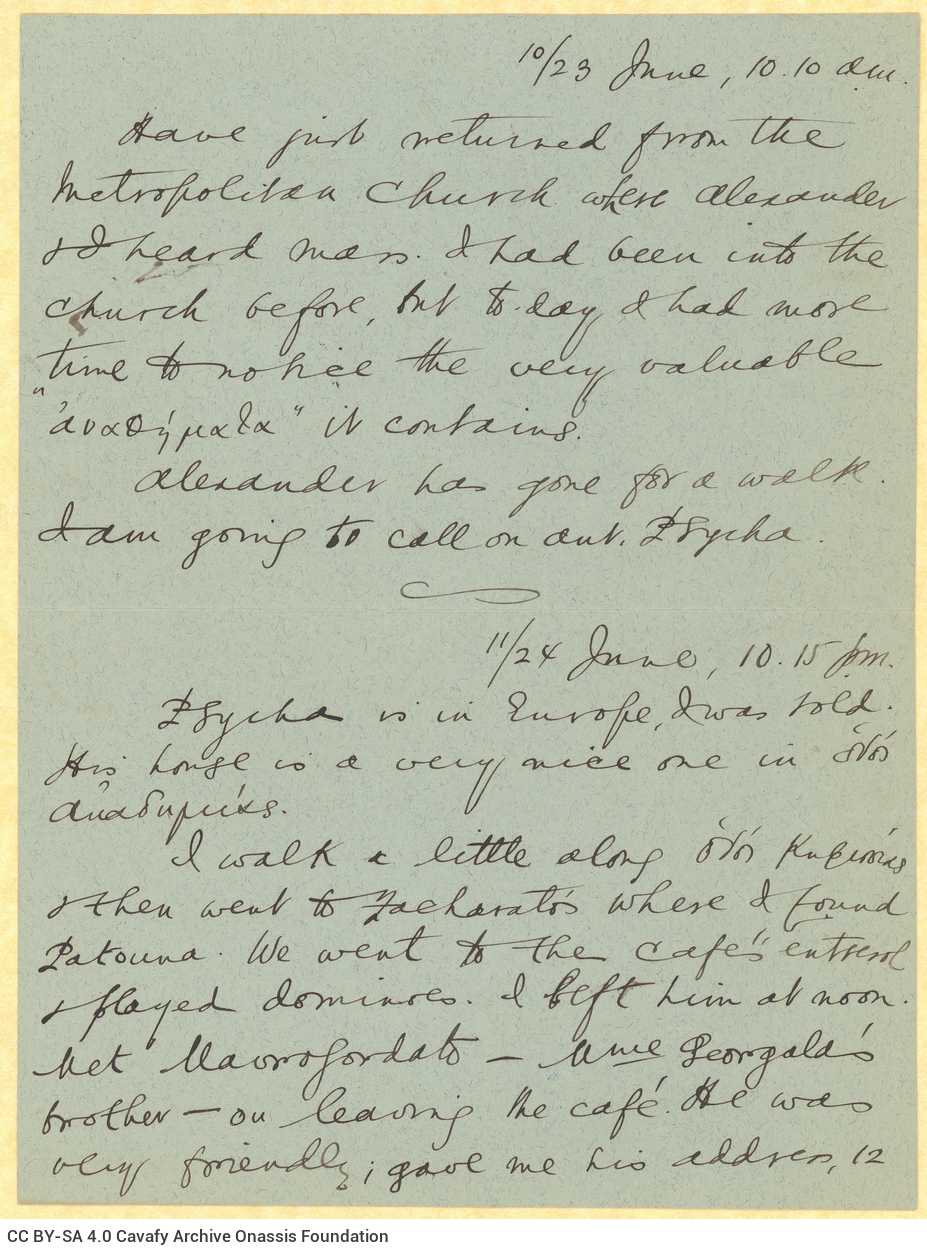 10/23 June, 10.10 a.m.
Have just returned from the
Metropolitan Church where Alexander
& I heard mass. I had been into the
church before, but to-day I had more
time to notice the very valuable
"ἀναθήματα" it contains.
Alexander has gone for a walk.
I am going to call on Ant. Psycha.
11/24 June, 10.15 p.m.
Psycha is in Europe, I was told.
His house is a very nice one in ὁδός
Ἀκαδημείας.
I walk a little along ὁδός Κηφισσίας
& then went to Zacharato's where I found
Patouna. We went to the café's entresol
& played dominoes. I left him at noon.
Met Mavrogordato — Mme Georgala's
brother — on leaving the café. He was
very friendly; gave me his address, 12
CC BY-SA 4.0 Cavafy Archive Onassis Foundation